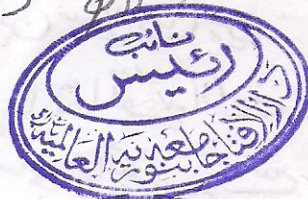 نائب
رئيس
دار الافتاء جامعہ بنوریہ العالمیہ